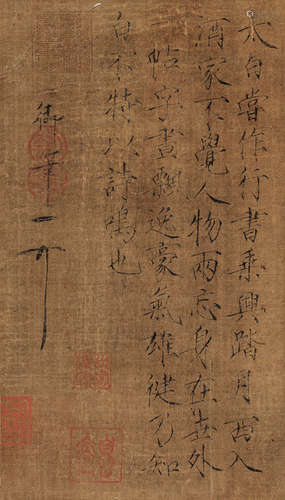 太白嘗作行書乘興踏月西入
酒家不覺人物兩忘身在世外
一帖字畫飄逸豪氣雄健乃知
白不特以詩鳴也
御筆